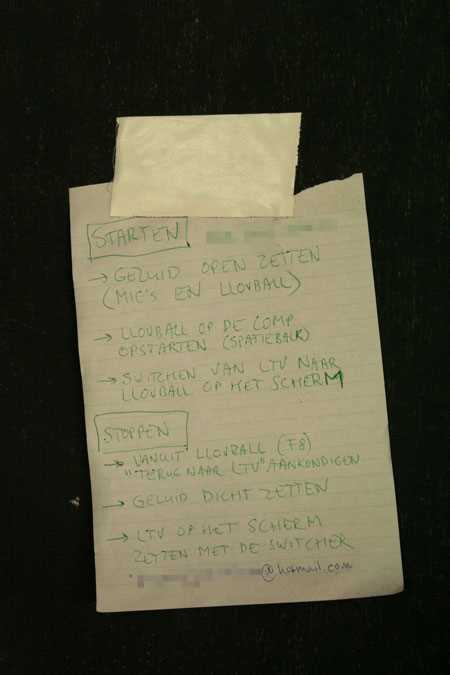 STARTEN
→ GELUID OPEN ZETTEN
(MIC'S EN LLOVBALL)
→ LLOVBALL OP DE COMP.
OPSTARTEN (SPATIEBALK)
→ SWITCHEN VAN LTV NAAR
LLOVBALL OP HET SCHERM
STOPPEN
→ VANUIT LLOVBALL (F8)
"TERUG NAAR LTV" AANKONDIGEN
→ GELUID DICHT ZETTEN
→ LTV OP HET SCHERM
ZETTEN MET DE SWITCHER
@hotmail.com